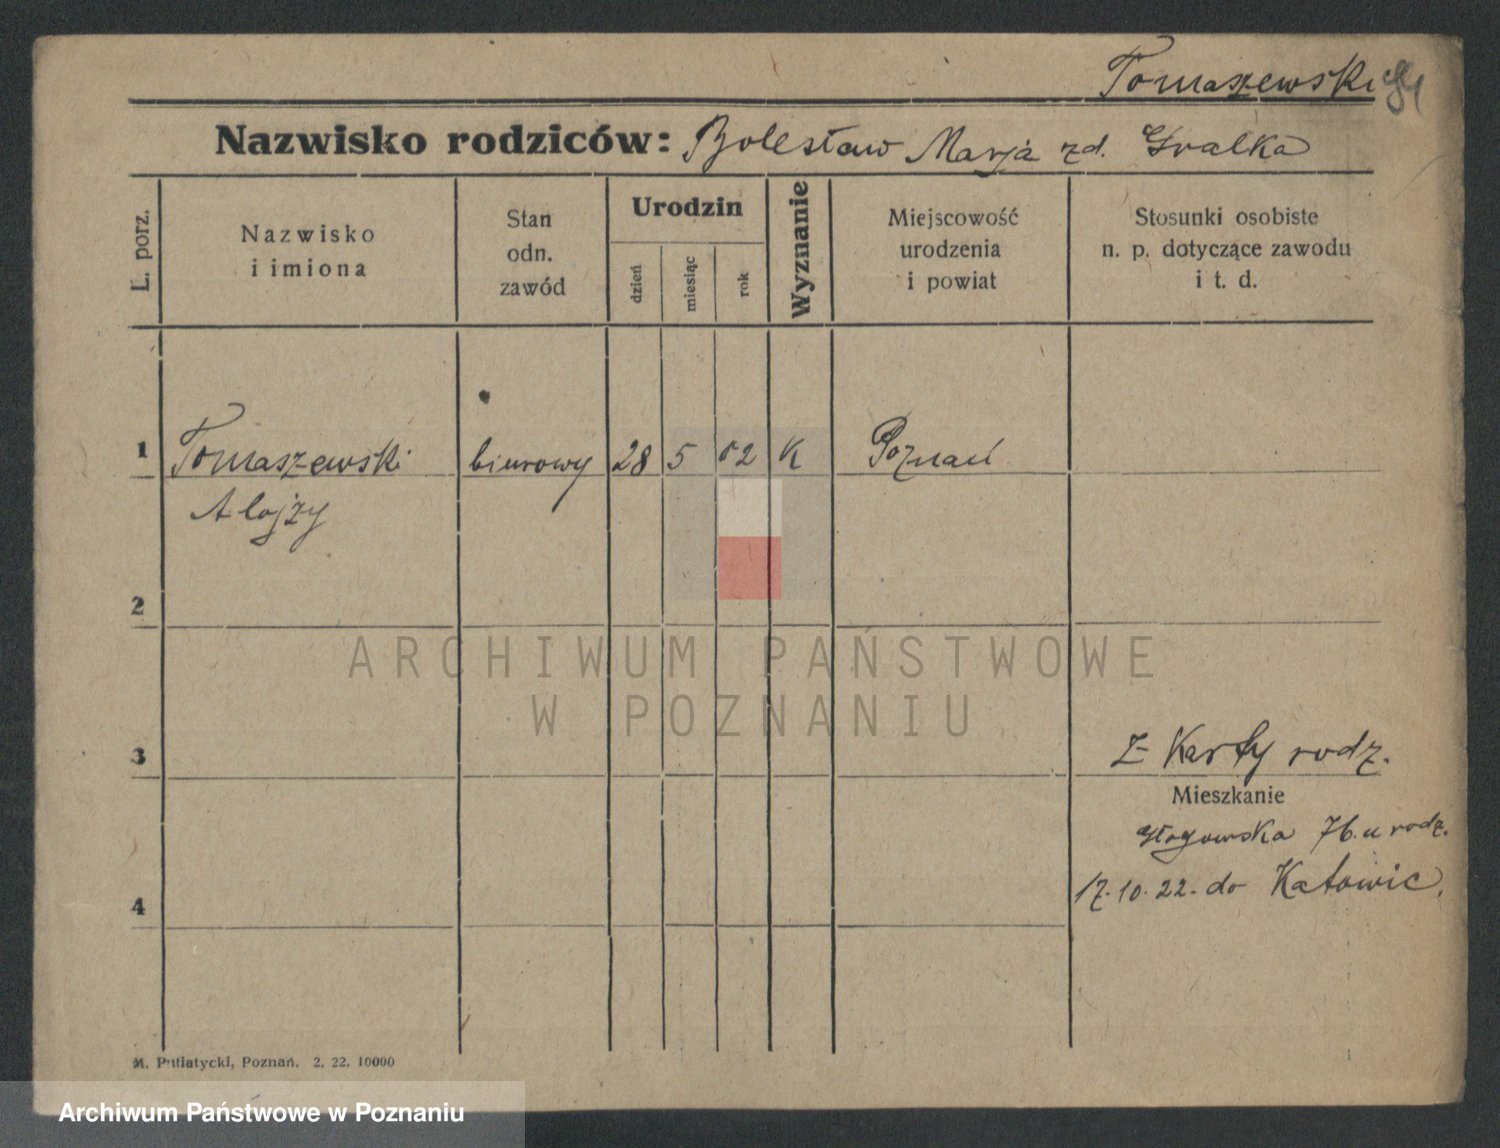 Tomaszewski 84
Nazwisko rodziców: Bolesław Marja zd. Gralka
L. porz.
Nazwisko
i imiona
Stan
odn.
zawód
Urodzin
dzień
miesiąc
rok
Wyznanie
Miejscowość
urodzenia
i powiat
Stosunki osobiste
n. p. dotyczące zawodu
i t. d.
1 Tomaszewski biurowy 28 5 02 K Poznań
Alojzy
2
ARCHIWUM PAŃSTWOWE
W POZNANIU
3 Z Karty rodz.
Mieszkanie
Głogowska 76. u rodz.
17.10.22. do Katowic.
4
M. Putiatycki, Poznań. 2. 22. 10000
Archiwum Państwowe w Poznaniu